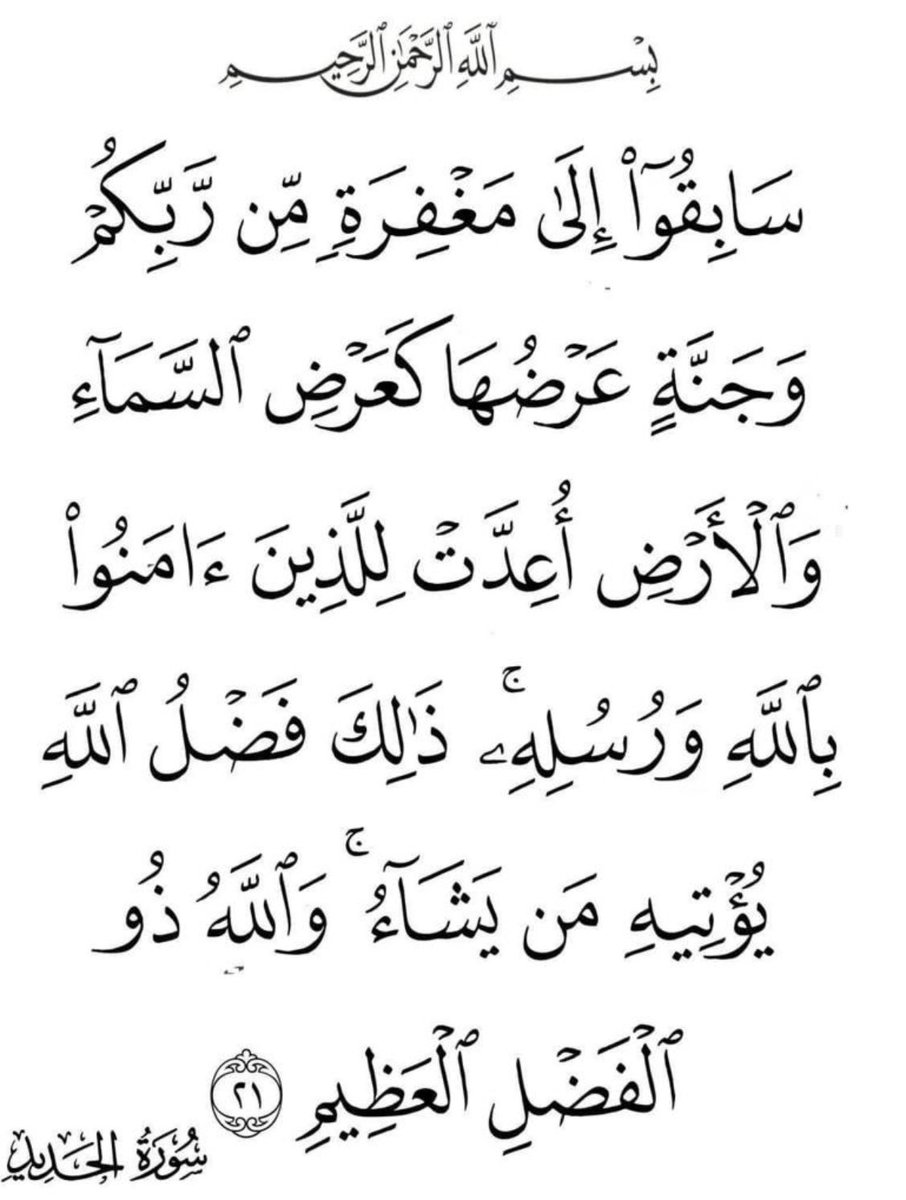 بِسْمِ ٱللَّهِ ٱلرَّحْمَٰنِ ٱلرَّحِيمِ
سَابِقُوٓا۟ إِلَىٰ مَغْفِرَةٍ مِّن رَّبِّكُمْ
وَجَنَّةٍ عَرْضُهَا كَعَرْضِ ٱلسَّمَآءِ
وَٱلْأَرْضِ أُعِدَّتْ لِلَّذِينَ ءَامَنُوا۟
بِٱللَّهِ وَرُسُلِهِۦ ۚ ذَٰلِكَ فَضْلُ ٱللَّهِ
يُؤْتِيهِ مَن يَشَآءُ ۚ وَٱللَّهُ ذُو
ٱلْفَضْلِ ٱلْعَظِيمِ ٢١
سُورَةُ الحَدِيدِ